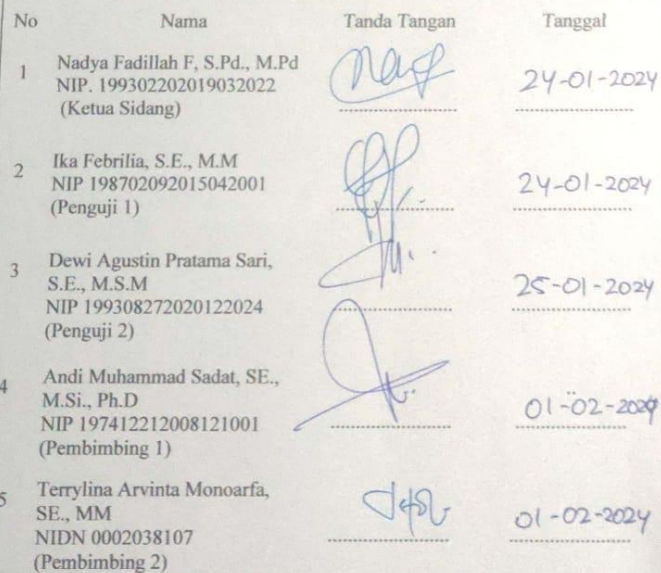 No Nama Tanda Tangan Tanggal
1 Nadya Fadillah F, S.Pd., M.Pd
NIP. 199302202019032022
(Ketua Sidang)
24-01-2024
2 Ika Febrilia, S.E., M.M
NIP 198702092015042001
(Penguji 1)
24-01-2024
3 Dewi Agustin Pratama Sari,
S.E., M.S.M
NIP 199308272020122024
(Penguji 2)
25-01-2024
4 Andi Muhammad Sadat, SE.,
M.Si., Ph.D
NIP 197412212008121001
(Pembimbing 1)
01-02-2024
5 Terrylina Arvinta Monoarfa,
SE., MM
NIDN 0002038107
(Pembimbing 2)
01-02-2024